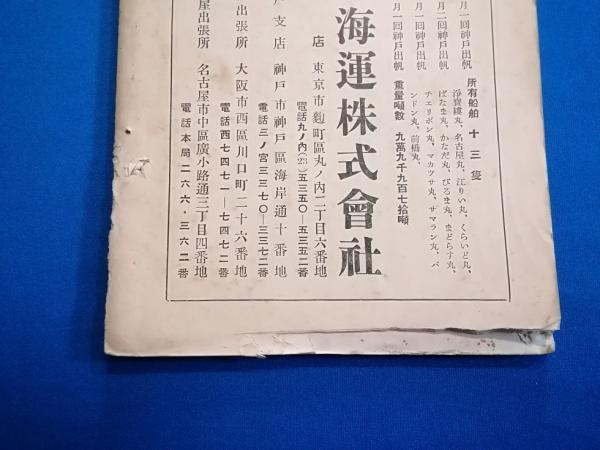 月一回神戸出帆
月二回神戸出帆
月一回神戸出帆
月一回神戸出帆
所有船舶 十三隻
淨寶縷丸、名古屋丸、江りい丸、くらいど丸、
ぱなま丸、かなだ丸、びるま丸、まどらす丸、
チェリボン丸、マカツサ丸、サマラン丸、バ
ンドン丸、前橋丸、
重量噸數 九萬九千九百七拾噸
海運株式會社
店 東京市麴町區丸ノ内二丁目六番地
電話丸ノ内(23)五三五〇—五三五二番
戸支店 神戸市神戸區海岸通十番地
電話三ノ宮三三七〇—三三七二番
出張所 大阪市西區川口町二十六番地
電話西七四七一—七四七二番
屋出張所 名古屋市中區廣小路通三丁目四番地
電話本局二六六・三六二番